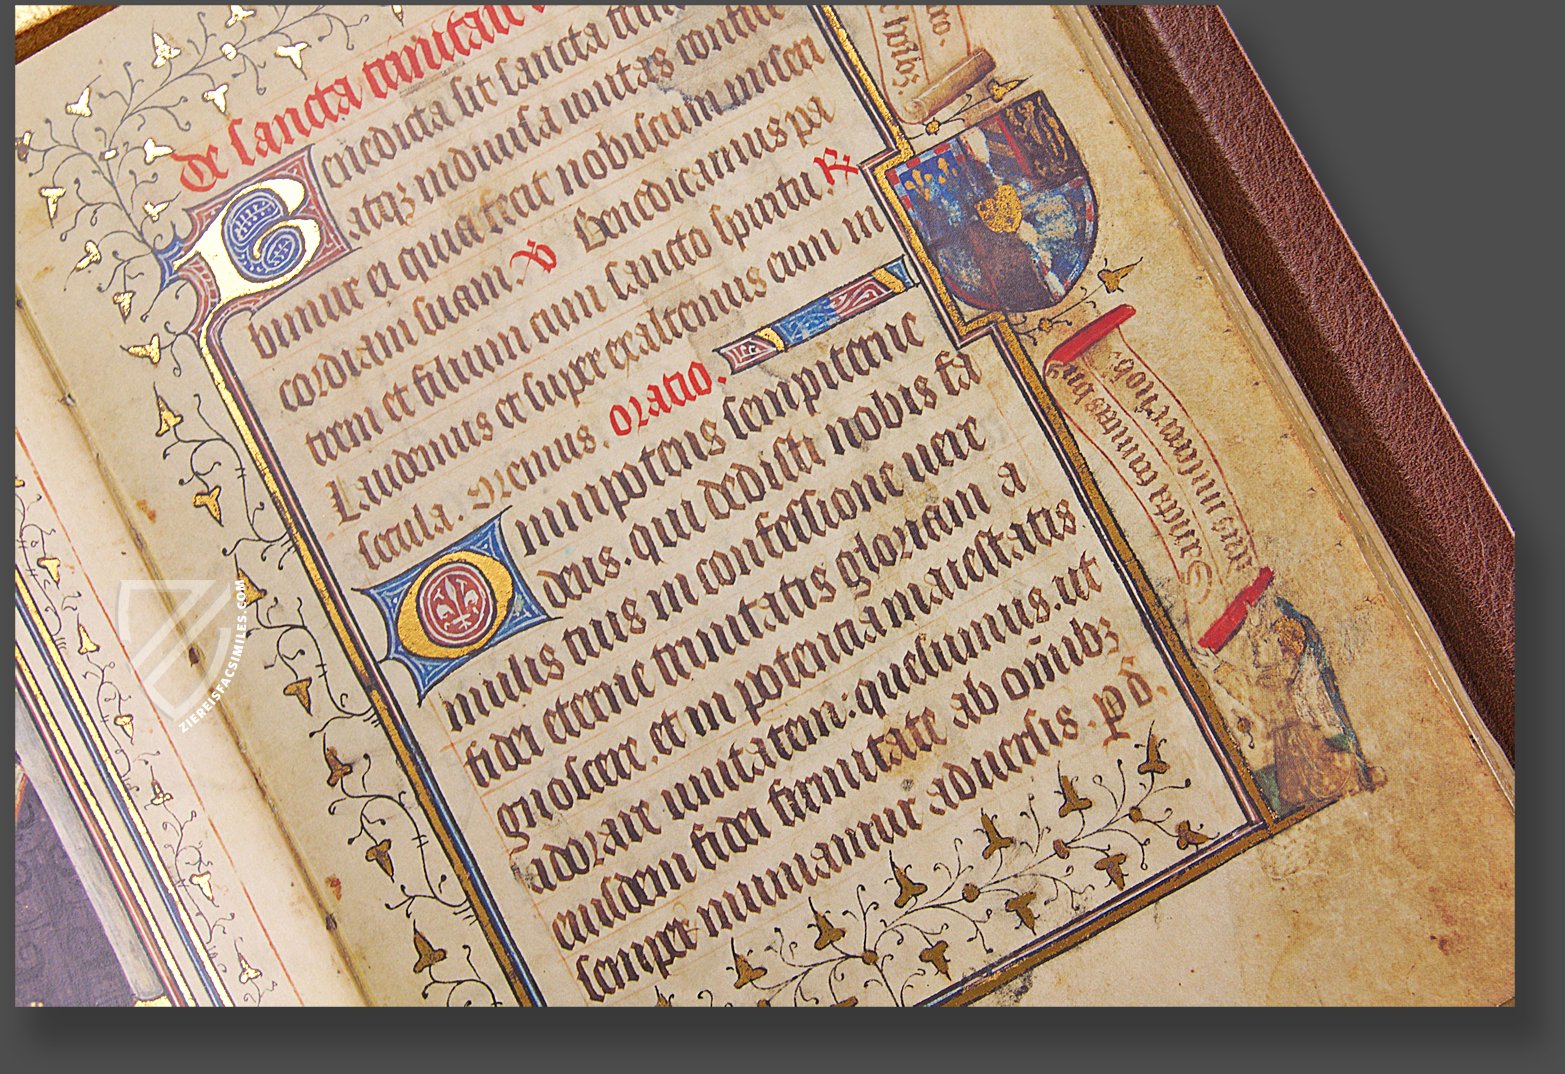 De sancta trinitate
Benedicta sit sancta
atqz indiuisa unitas confite
bimur ei quia fecit nobiscum miseri
cordiam suam. ℣ Benedicamus pa
trem et filium cum sancto spiritu. ℟
Laudemus et superexaltemus eum in
secula. Oremus. Oratio.
Omnipotens sempiterne
deus. qui dedisti nobis fa
mulis tuis in confessione uere
fidei eterne trinitatis gloriam a
gnoscere. et in potentia maiestatis
adorare unitatem: quesumus. ut
eiusdem fidei firmitate ab om̄ibz
semper muniamur aduersis. p d̄.
Sancta trinitas vn
deus miserere nob
ZIEREISFACSIMILES.COM